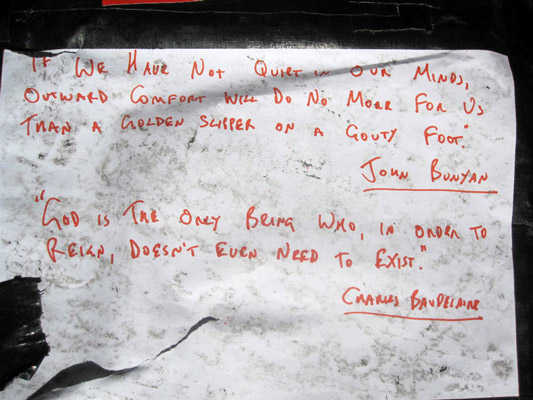 IF WE HAVE NOT QUIET IN OUR MINDS,
OUTWARD COMFORT WILL DO NO MORE FOR US
THAN A GOLDEN SLIPPER ON A GOUTY FOOT."
JOHN BUNYAN
"GOD IS THE ONLY BEING WHO, IN ORDER TO
REIGN, DOESN'T EVEN NEED TO EXIST."
CHARLES BAUDELAIRE